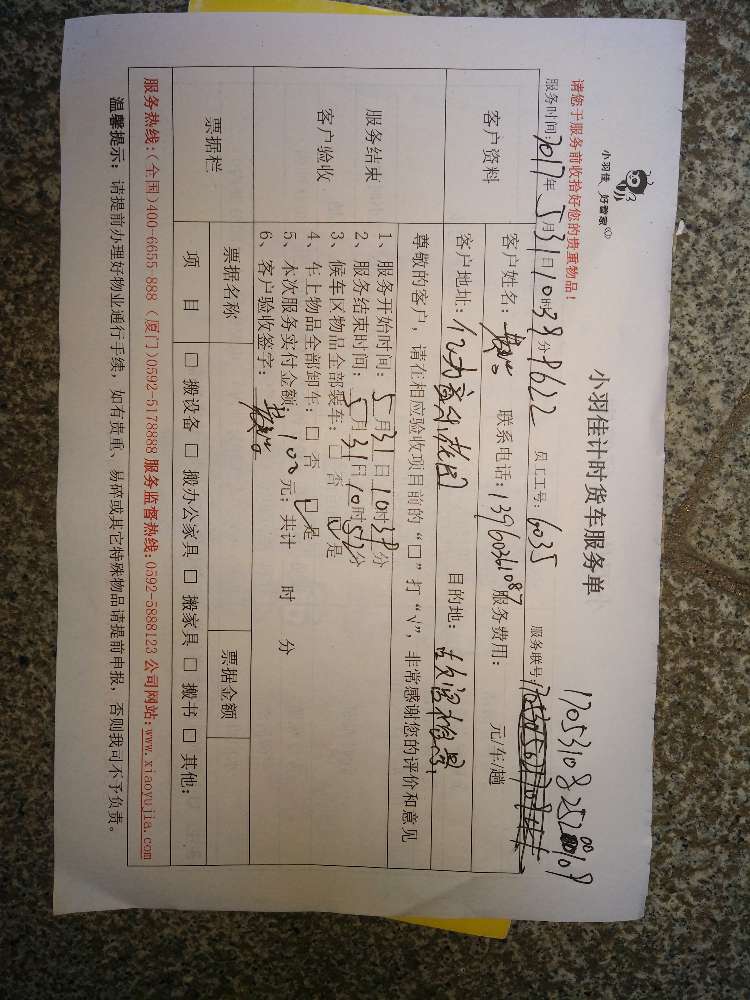 小羽佳 好管家
小羽佳计时货车服务单
请您于服务前收拾好您的贵重物品!
1705310825200109
服务时间:2017年5月31日10时38分 8622 员工工号: 6035 服务联号:
客户资料
客户姓名: 联系电话:13960261087 服务费用: 元/车/趟
客户地址: 目的地:
服务结束
客户验收
尊敬的客户,请在相应验收项目前的“□”打“√”,非常感谢您的评价和意见
1、服务开始时间:5月31日10时38分
2、服务结束时间:5月31日10时52分
3、候车区物品全部装车:□否 ☑是
4、车上物品全部卸车:□否 ☑是
5、本次服务实付金额:100元;共计 时 分
6、客户验收签字:
票据栏
票据名称 票据金额
项 目 □ 搬设备 □ 搬办公家具 □ 搬家具 □ 搬书 □ 其他:
服务热线:(全国)400-6655 888 (厦门)0592-5178888 服务监督热线:0592-5888123 公司网站:www.xiaoyujia.com
温馨提示:请提前办理好物业通行手续,如有贵重、易碎或其它特殊物品请提前申报,否则我司不予负责。